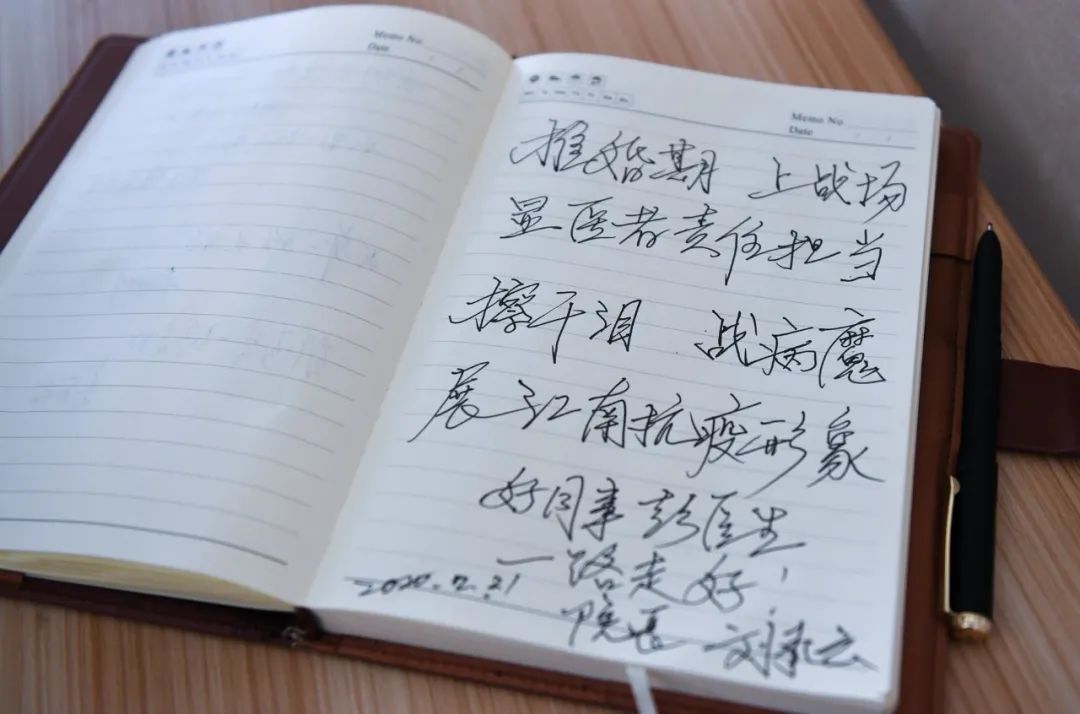 Memo No.
Date
Memo No.
Date
推婚期 上战场
显医者责任担当
擦干泪 战病魔
展江南抗疫形象
好同事彭医生
一路走好！
2020.2.21
院长 刘